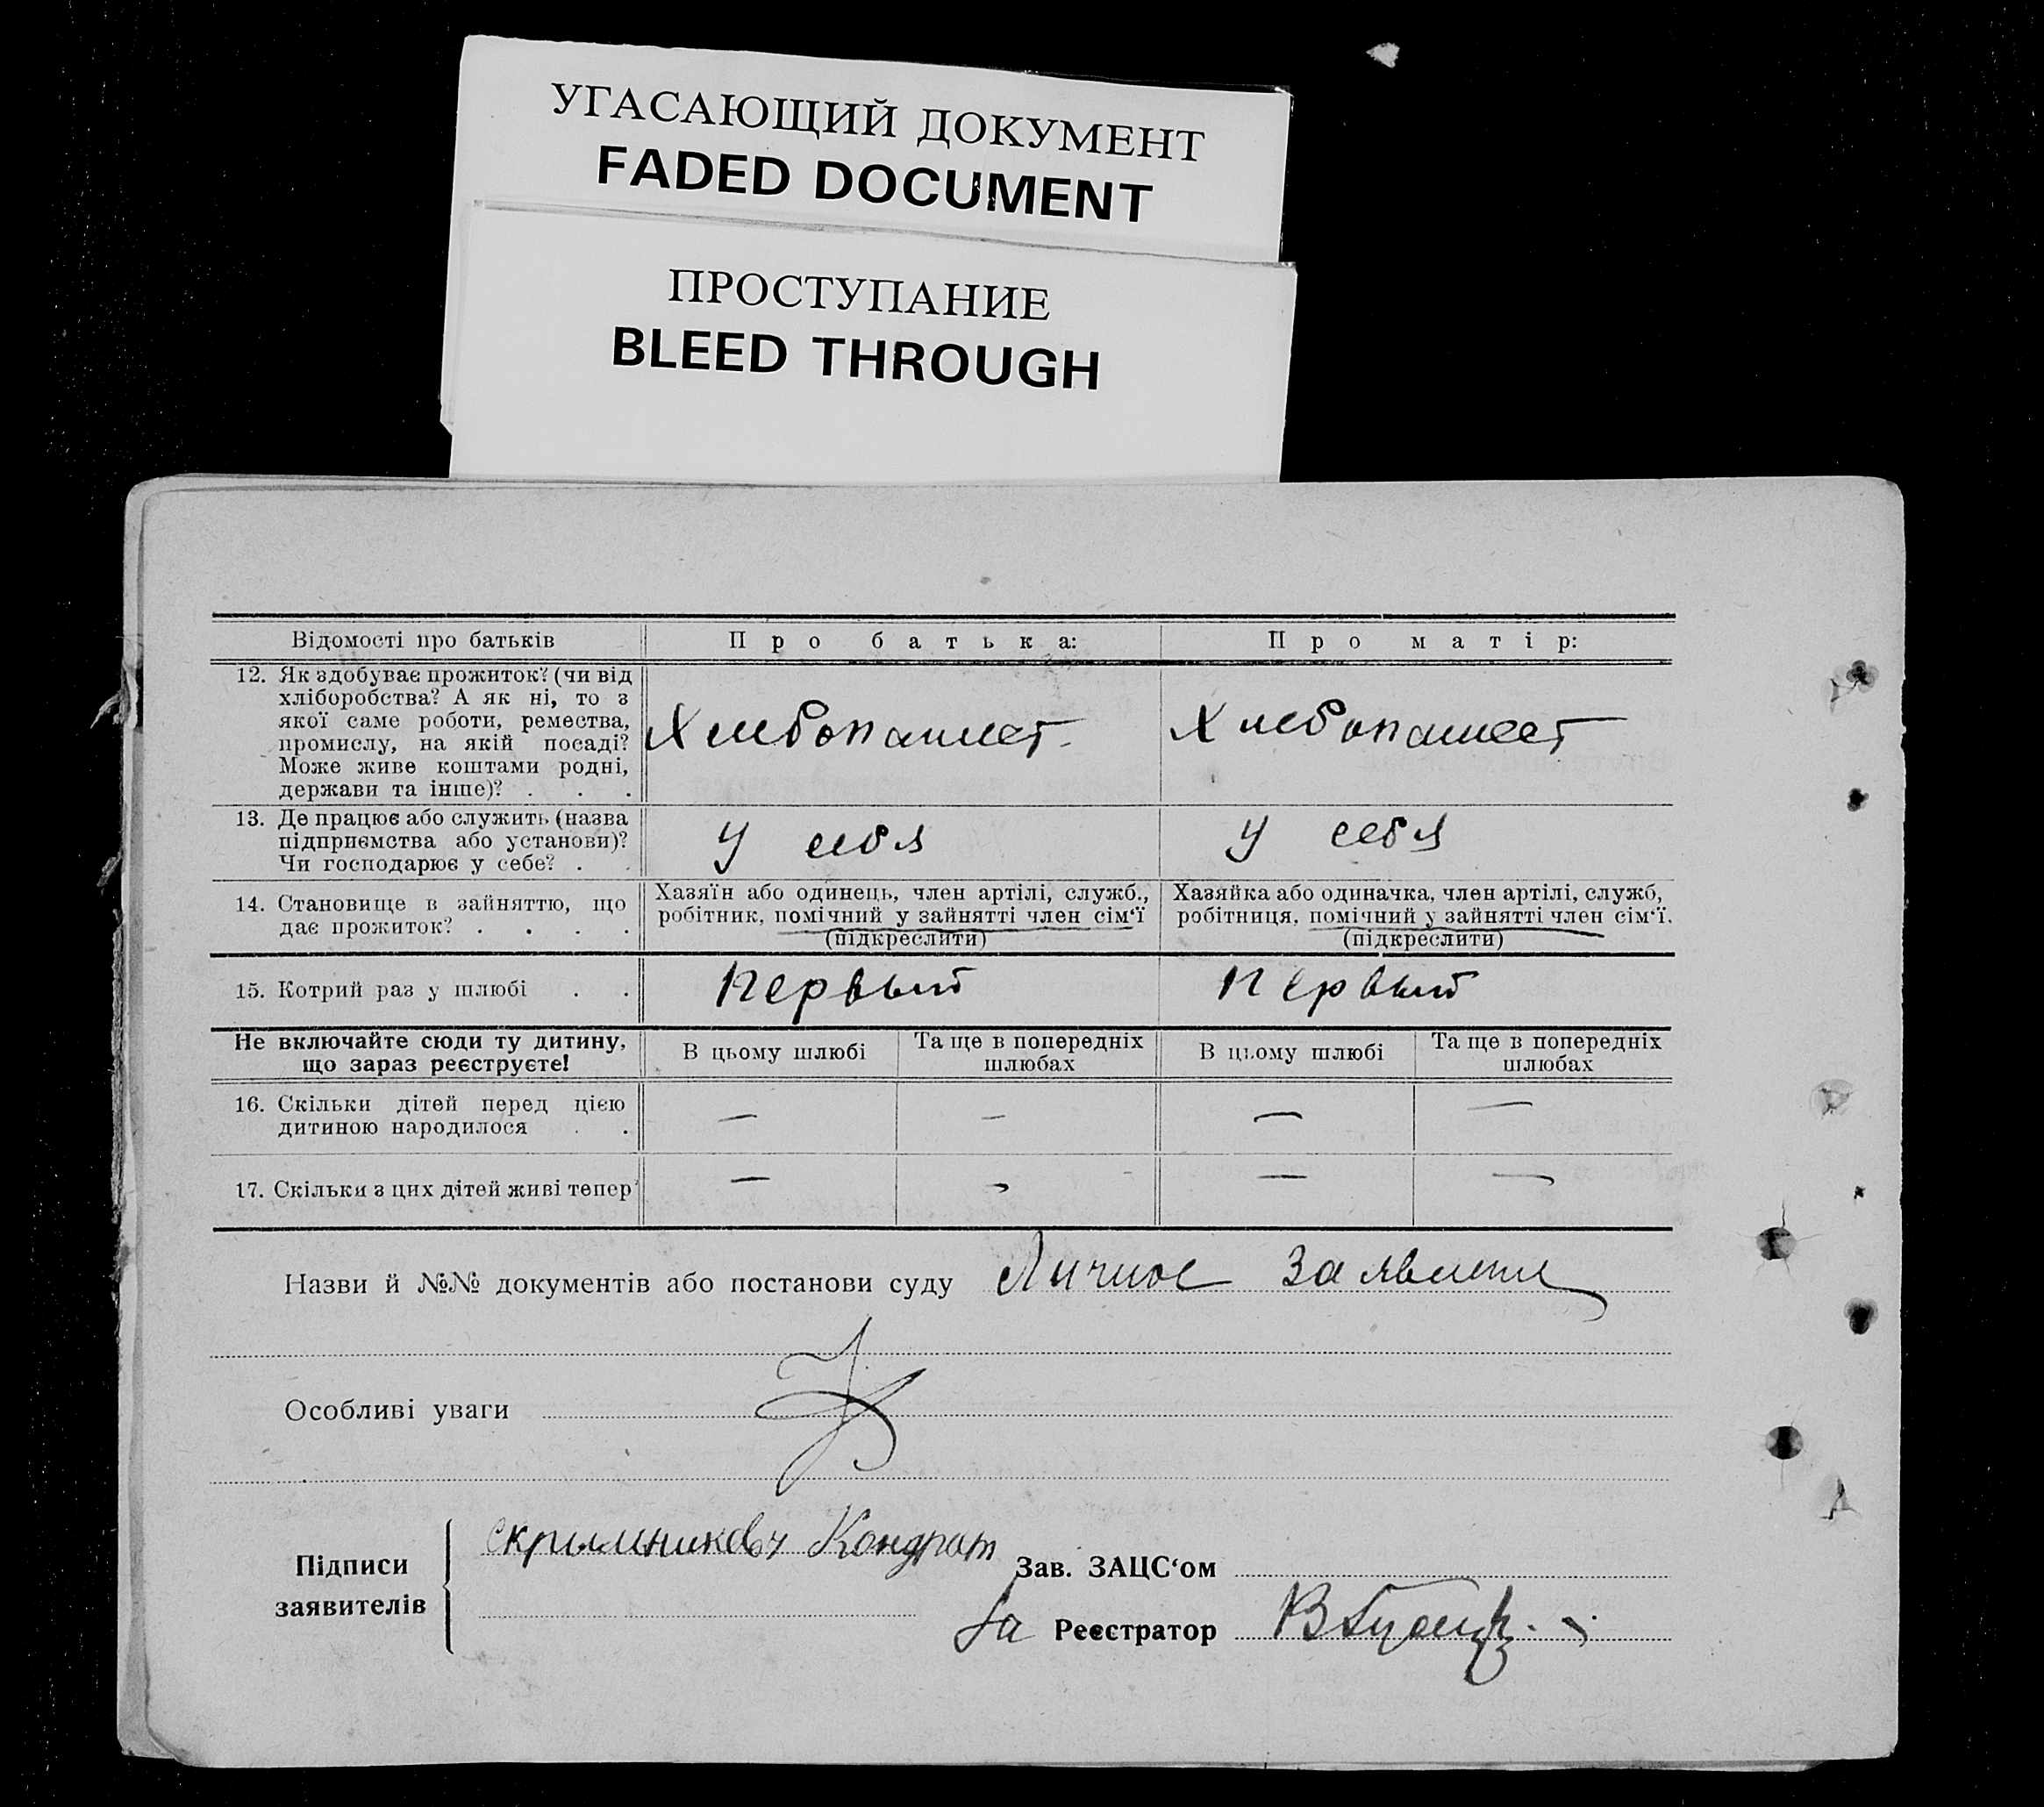 УГАСАЮЩИЙ ДОКУМЕНТ
FADED DOCUMENT
ПРОСТУПАНИЕ
BLEED THROUGH
Відомості про батьків
Про батька:
Про матір:
12. Як здобуває прожиток? (чи від
хліборобства? А як ні, то з
якої саме роботи, ремества,
промислу, на якій посаді?
Може живе коштами родні,
держави та інше)? . . .
Хлебопашест
Хлебопашест
13. Де працює або служить (назва
підприємства або установи)?
Чи господарює у себе? . .
У себя
У себя
14. Становище в зайняттю, що
дає прожиток? . . . .
Хазяїн або одинець, член артілі, служб.,
робітник, помічний у зайнятті член сім‘ї
(підкреслити)
Хазяйка або одиначка, член артілі, служб,
робітниця, помічний у зайнятті член сім‘ї.
(підкреслити)
15. Котрий раз у шлюбі . .
Первый
Первый
Не включайте сюди ту дитину,
що зараз реєструєте!
В цьому шлюбі
Та ще в попередніх
шлюбах
В цьому шлюбі
Та ще в попередніх
шлюбах
16. Скільки дітей перед цією
дитиною народилося . .
— — — —
17. Скільки з цих дітей живі тепер?
— — — —
Назви й №№ документів або постанови суду Личное
Особливі уваги
Підписи
заявителів
Кондрат
Зав. ЗАЦС‘ом
За Реєстратор